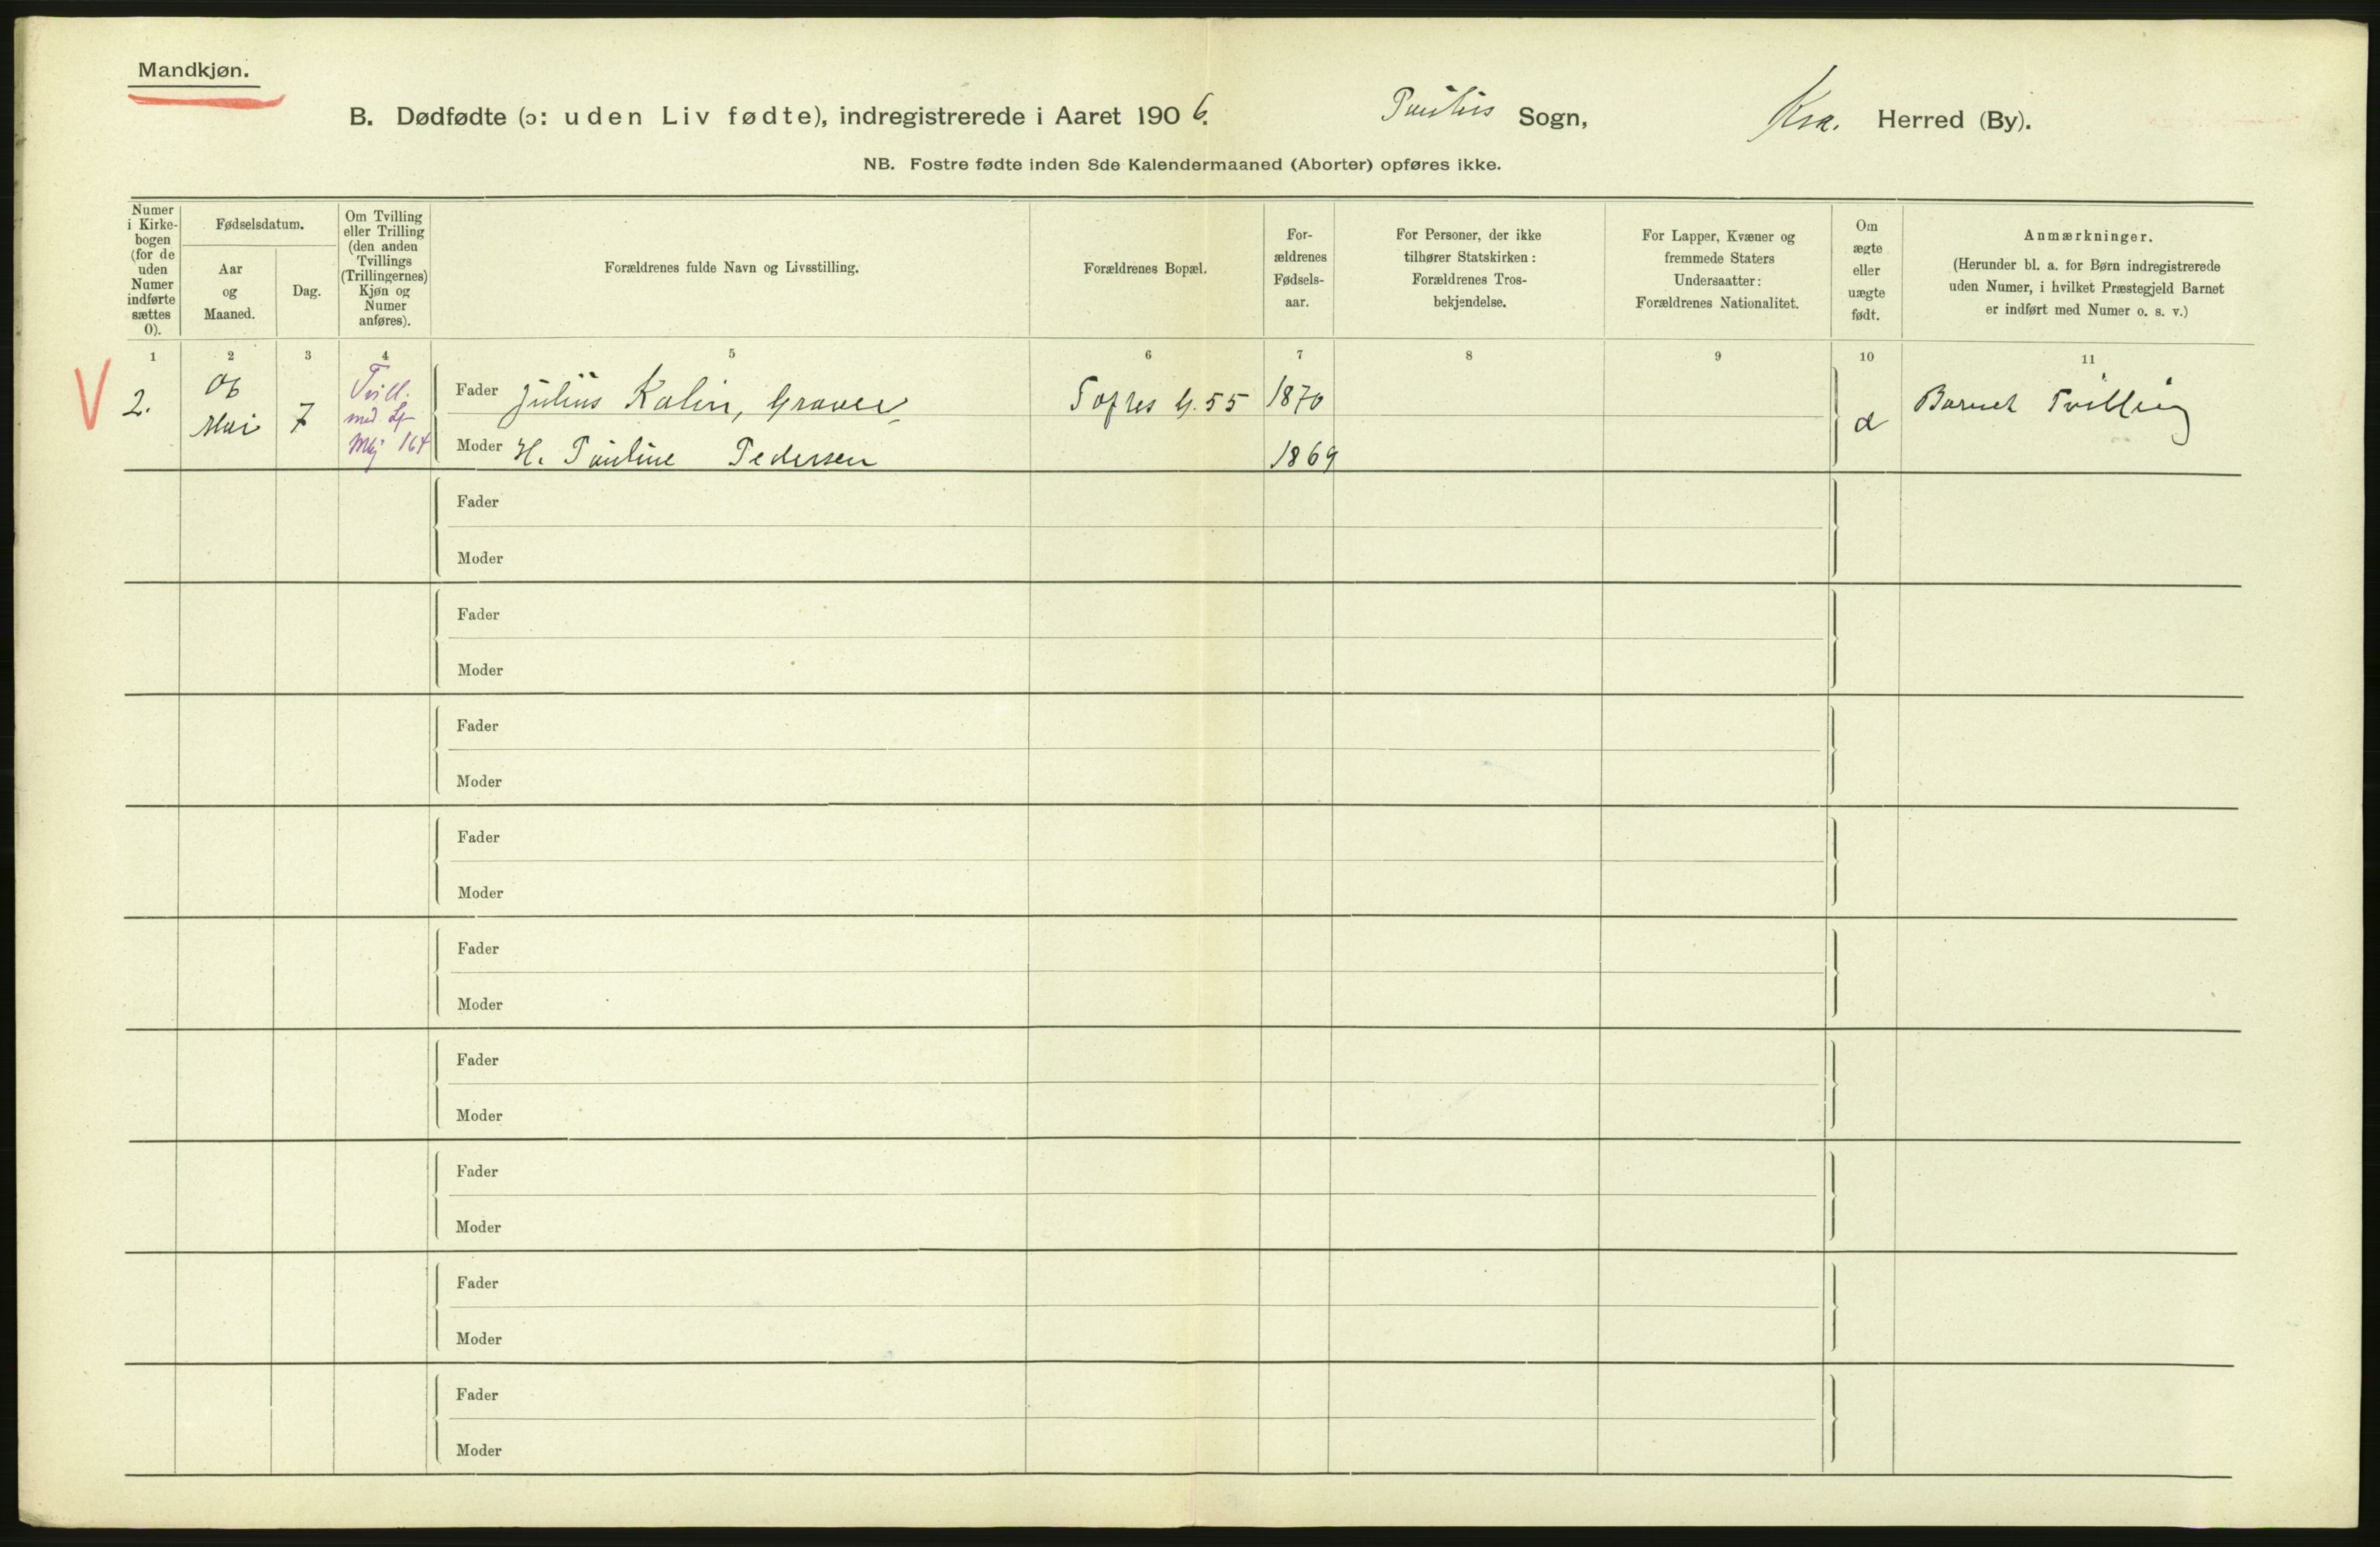 Mandkjøn.
B. Dødfødte (ɔ: uden Liv fødte), indregistrerede i Aaret 1906. Paulus Sogn, Kra. Herred (By).
NB. Fostre fødte inden 8de Kalendermaaned (Aborter) opføres ikke.
Numer
i Kirke-
bogen
(for de
uden
Numer
indførte
sættes
0).
Fødselsdatum.
Aar
og
Maaned.
Dag.
Om Tvilling
eller Trilling
(den anden
Tvillings
(Trillingernes)
Kjøn og
Numer
anføres).
Forældrenes fulde Navn og Livsstilling.
Forældrenes Bopæl.
For-
ældrenes
Fødsels-
aar.
For Personer, der ikke
tilhører Statskirken:
Forældrenes Tros-
bekjendelse.
For Lapper, Kvæner og
fremmede Staters
Undersaatter:
Forældrenes Nationalitet.
Om
ægte
eller
uægte
født.
Anmærkninger.
(Herunder bl. a. for Børn indregistrerede
uden Numer, i hvilket Præstegjeld Barnet
er indført med Numer o. s. v.)
1 2 3 4 5 6 7 8 9 10 11
V
2.
06
Mai
7
Tvill.
med Lf
Mkj 164
Fader Julius Kalin, Graver
Sofies G. 55
1870
Moder H. Pauline Pedersen
1869
Barnet Tvilling
Fader
Moder
Fader
Moder
Fader
Moder
Fader
Moder
Fader
Moder
Fader
Moder
Fader
Moder
Fader
Moder
Fader
Moder